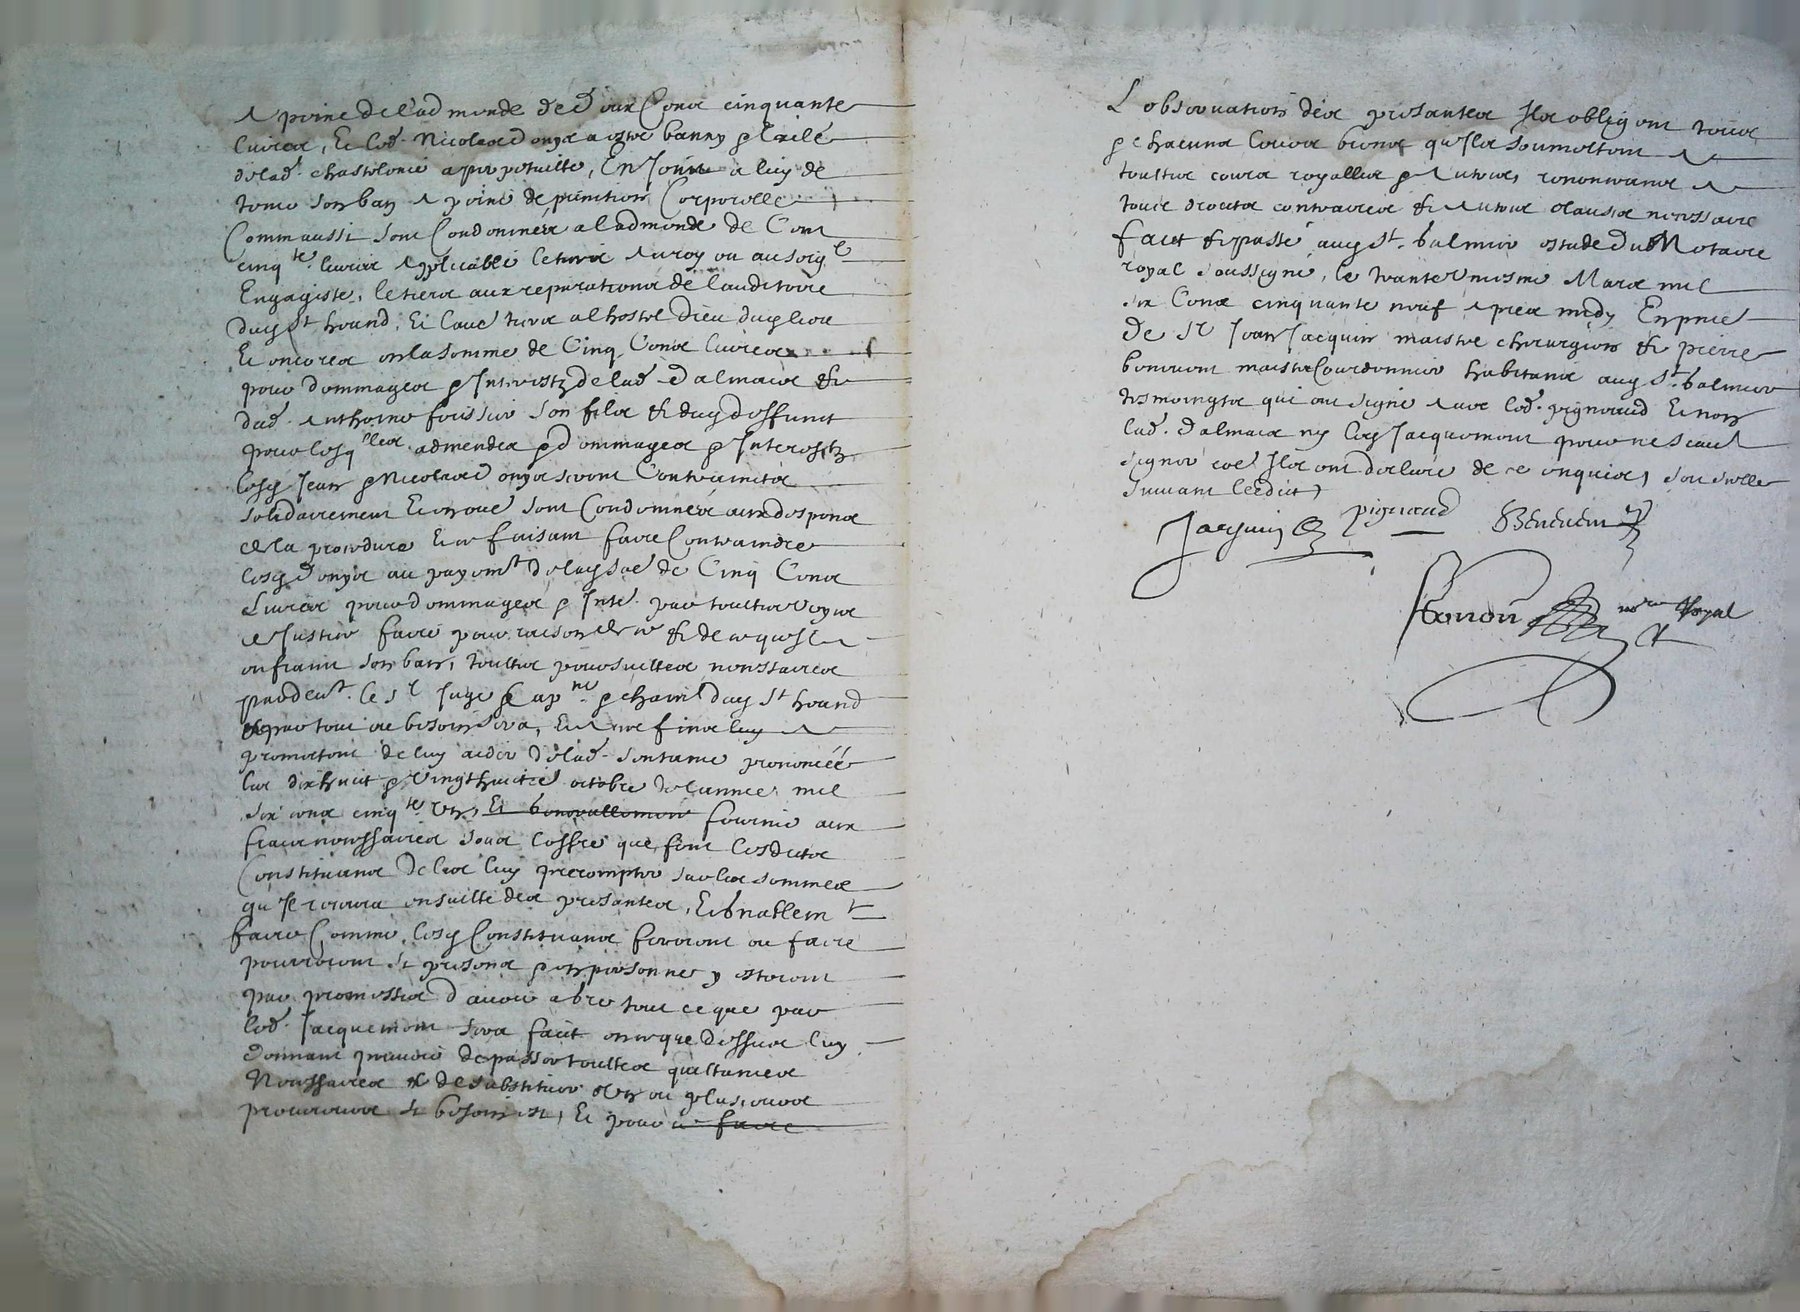 A peine de l'admende de deux Cens cinquante
livres, Et led. Nicolas donys a estre banny & exilé
de lad. chastelenie a perpetuitte, Enjoint a luy de
tenir son ban A peine de punition Corporelle
Comm aussi sont Condemnés a ladmende de Cent
cinq.te livres Aplicable le tiers Au roy ou au seig.r
Engagiste, le tiers aux reparations de lauditoire
dud St heand, Et laue tiers a lhostel dieu dug lieu
Et encores en la somme de Cinq Cens livres
pour dommages & Interestz de lad. dalmais &
dud. Anthoine fouissier son filz & dug deffunct
pour lesq.lles admendes & dommages & Interestz
lesg Jean & Nicolas donys seront Contrainctz
solidairement Et en oue sont Condemnés aux despens
de la procedure Et ce faisant faire Contraindre
lesg donys au payem.t de lag soe de Cinq Cens
Livres pour dommages & Inte. par touttes voyes
de Justice faire pour raison de ce & de ce quil a
enfraint son ban, touttes poursuittes necessaires
pardeut. le Sr Juge & chastel dug St heand
& par tout ou besoin sera, Et Aux fins luy
promettent de luy aider de lad. sentance prononcéé
les dixhuict & vingthuictie octobre de lannee mil
six cens cinq.te Un, Et generallement fournir aux
fraix necessaires soubz loffre que font lesdictz
Constituans de les luy precompter sur les sommes
qu Il recevra ensuitte des presantes, Et gnallem.t
faire Comme lesg Constituans feroient ou faire
pourroient si presens & en personnes y estoient
par promesse d auoir agre tout ce que par
led. Jacquemont sera faict en ce que dessus luy
donnant pouuoir de passer touttes quittances
Necessaires & de substituer Un ou plusieurs
procureurs si besoin est, Et pour ce faire
L observation des presantes Ilz obligent tous
& chacuns leurs biens qu Ilz soumettent A
touttes cours royalles & Autres, renonceans A
tous droictz contraires & Autres clauses necessaire
faict & passé aug St. Galmier estude du Notaire
royal soussigné, le trantevniesme Mars mil
six Cens cinquante neuf Apres midy En pnce
de Sr Jean Jacquin maistre chirurgien & pierre
benevent maistre Courdonnier habitans aug St. Galmier
tesmoingtz qui ont signé Auec led. pigneaud Et non
lad. dalmais ny leg Jacquemont pour ne scauoir
signer coe Ilz ont declaré de ce enquis, sou selle
Suiuant ledict)
Jacquin pigneaud Benevent
Rondin nore Royal